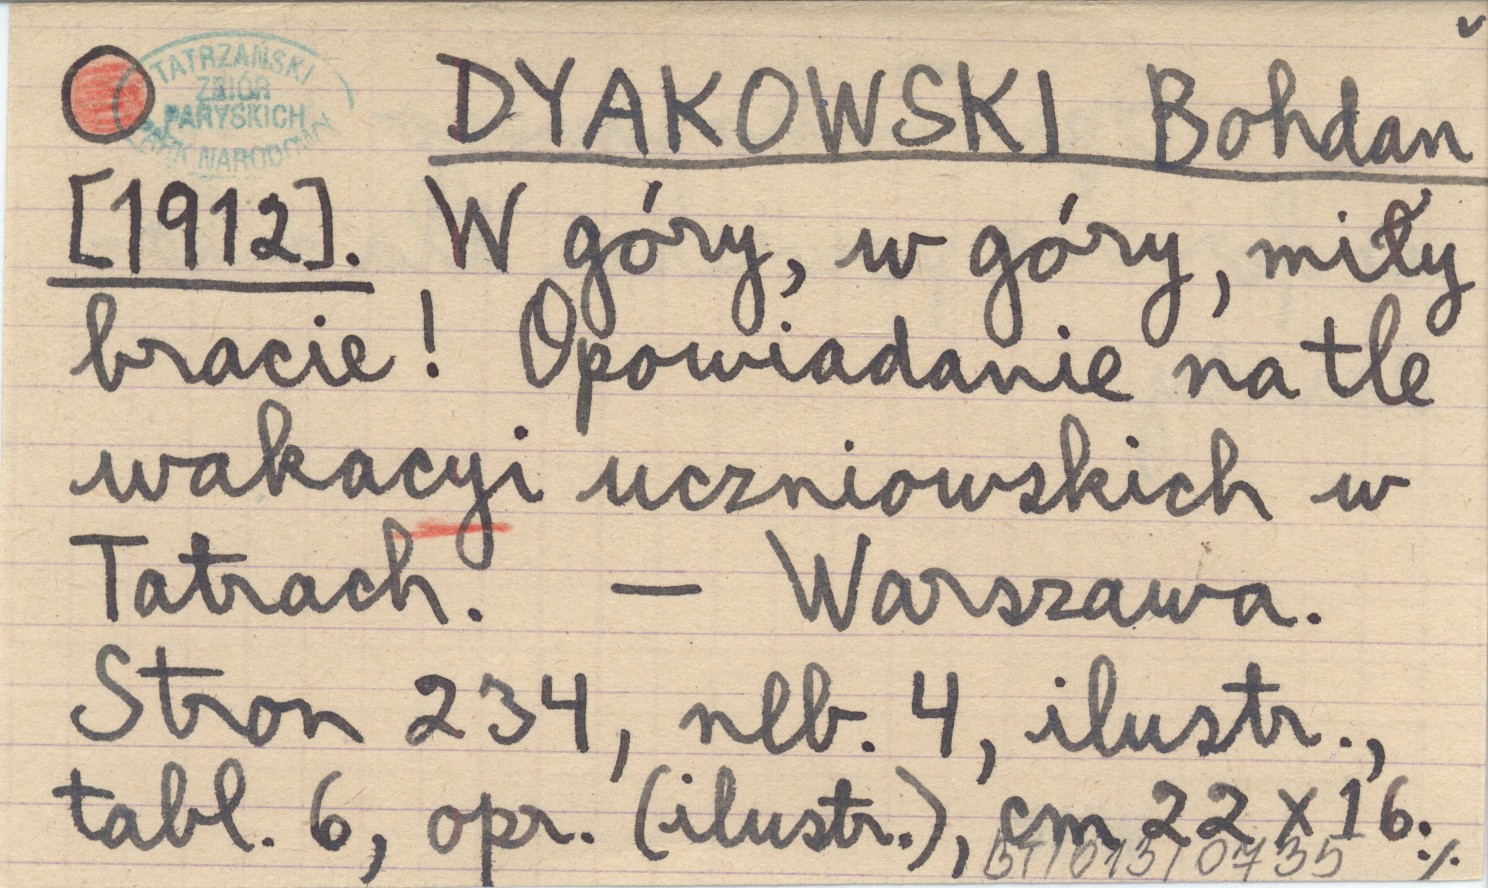 TATRZAŃSKI
ZBIÓR
PARYSKICH
PARK NARODOWY
DYAKOWSKI Bohdan
[1912]. W góry, w góry, miły
bracie! Opowiadanie na tle
wakacyi uczniowskich w
Tatrach. — Warszawa.
Stron 234, nlb. 4, ilustr.,
tabl. 6, opr. (ilustr.), cm 22 x 16.
BT/013/0735 ./.